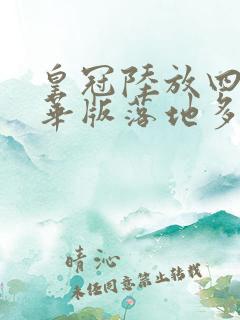 皇冠陸放四
華版落地多
晴沁
未经同意禁止转载